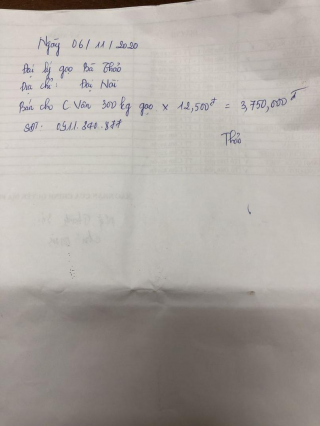 Ngày 06/11/2020
Đại lý gạo Bà Thảo
Địa chỉ: Đại Nài
Bán cho C Vân 300 kg gạo x 12,500đ = 3,750,000đ
Thảo